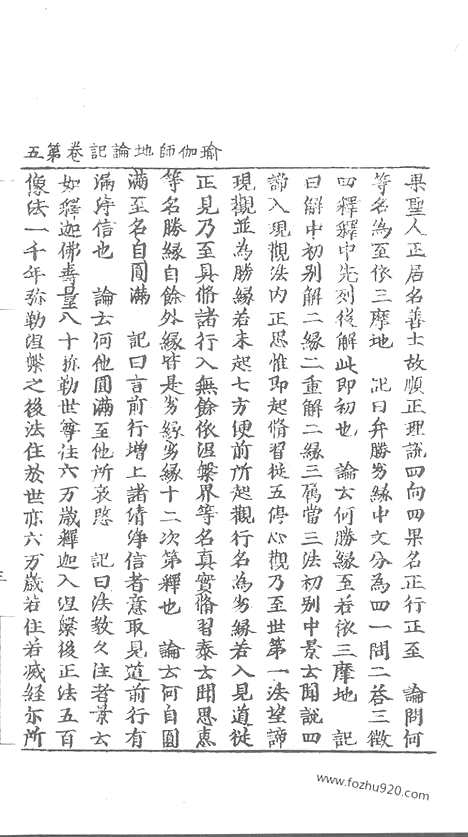 瑜伽師地論記卷第五
果聖人正居名善士故順正理說四向四果名正行正至　論問何
等名為至依三摩地　記曰弁勝劣緣中文分為四一問二荅三徵
四釋釋中先列後解此即初也　論云何勝緣至若依三摩地　記
曰解中初別解二緣二重解二緣三屬當三法初別中景云聞說四
諦入現觀法內正思惟即起脩習從五停心觀乃至世第一法望諦
現觀並為勝緣若未起七方便前所起觀行名為劣緣若入見道從
正見乃至具脩諸行入無餘依涅槃界等名真實脩習泰云聞思惠
等名勝緣自餘外緣皆是劣緣劣緣十二次第釋也　論云何自圓
滿至名自圓滿　記曰言前行增上諸清淨信者意取見道前行有
滿淨信也　論云何他圓滿至他所哀愍　記曰法教久住者景云
如釋迦佛壽量八十弥勒世尊住六万歲釋迦入涅槃後正法五百
像法一千年弥勒涅槃之後法住於世亦六万歲若住若滅経尓所
www.fozhu920.com